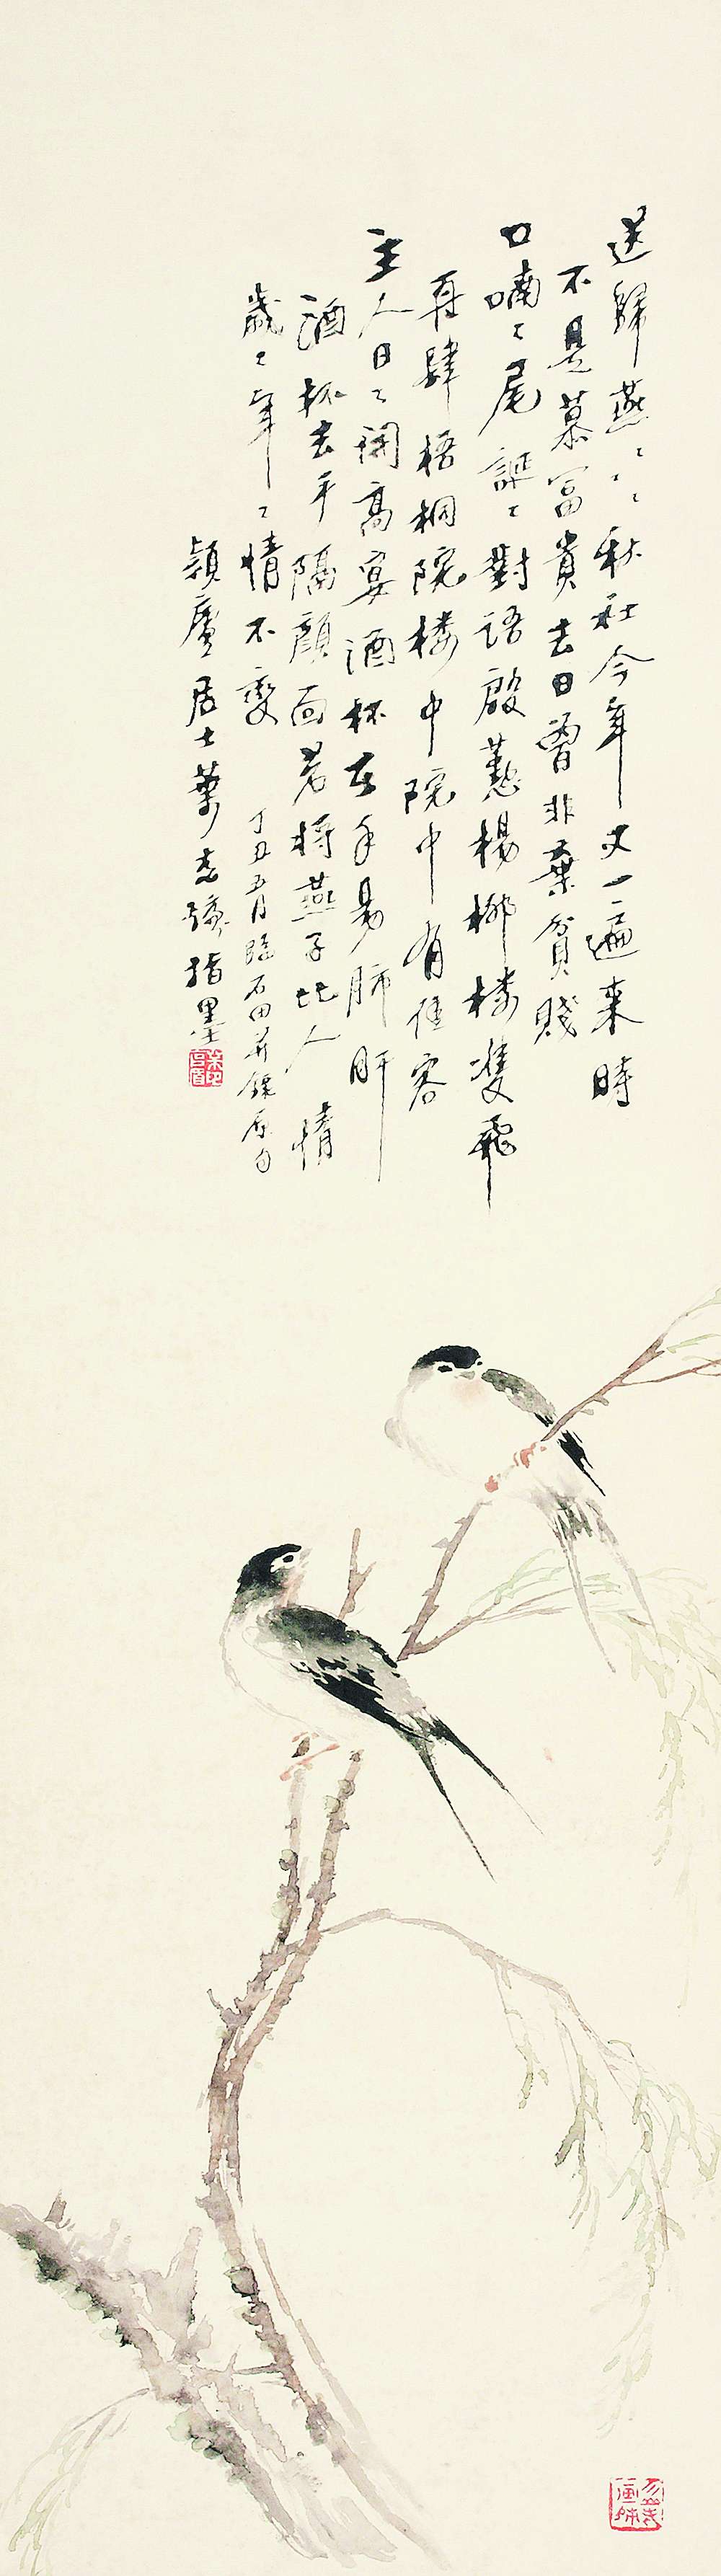 送歸燕〻〻秋社今年又一遍来時
不是慕富貴去日曾非棄貧賤
口喃〻尾誕〻對語殷懃楊柳楼雙飛
再肆梧桐院楼中院中有佳客
主人日〻開高宴酒杯在手易肺肝
酒杯去手隔顔面若将燕子比人情
歲〻年〻情不變
丁丑五月臨石田并録原句
穎廣居士葉志 指墨